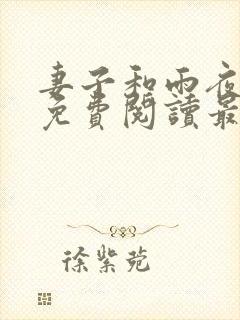 妻子和雨夜
免費閱讀最
徐紫菀